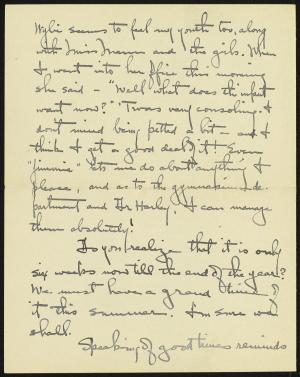 Wylie seems to feel my youth too, along
with Miss Mann and the girls. When
I went into her office this morning
she said - "Well what does the infant
want now?" 'Twas very consoling. I
don't mind being petted a bit - and I
think I get a good deal of it! Even
"Jimmie" lets me do about anything I
please, and as to the gymnasium de-
partment and Dr. Harley, I can manage
them absolutely!
Do you realize that it is only
six weeks now till the end of the year?
We must have a grand time of
it this summer. I'm sure we
shall.
Speaking of good times reminds